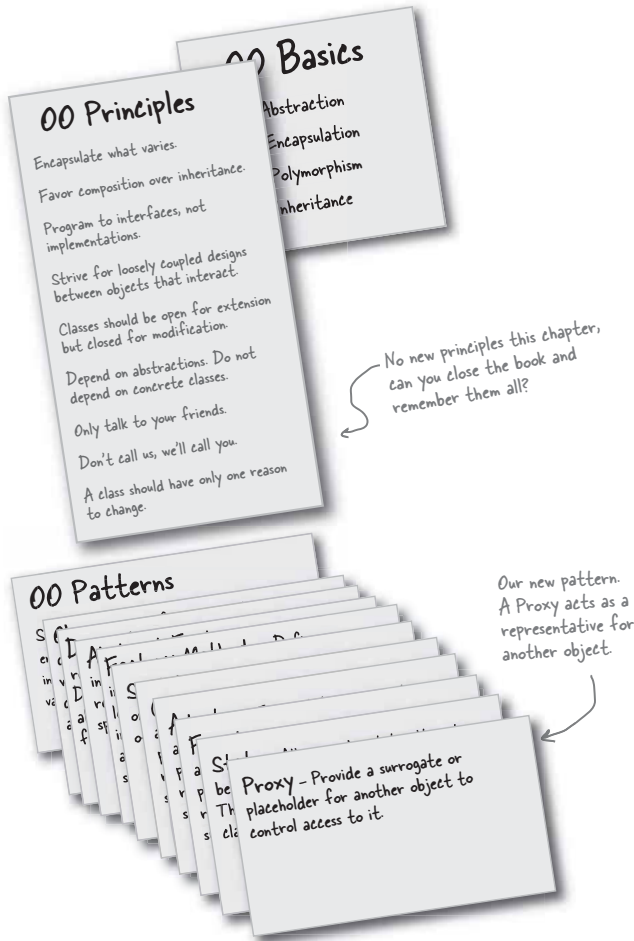 OO Basics
Abstraction
Encapsulation
Polymorphism
Inheritance
OO Principles
Encapsulate what varies.
Favor composition over inheritance.
Program to interfaces, not
implementations.
Strive for loosely coupled designs
between objects that interact.
Classes should be open for extension
but closed for modification.
Depend on abstractions. Do not
depend on concrete classes.
Only talk to your friends.
Don't call us, we'll call you.
A class should have only one reason
to change.
No new principles this chapter,
can you close the book and
remember them all?
OO Patterns
Our new pattern.
A Proxy acts as a
representative for
another object.
Proxy – Provide a surrogate or
placeholder for another object to
control access to it.